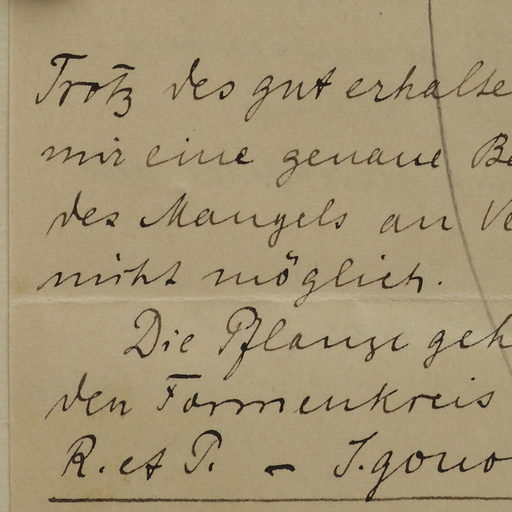 Trotz des gut erhalte
mir eine genaue Be
des Mangels an Ve
nicht möglich.
Die Pflanze geh
den Formenkreis
R. et P. – S. gono